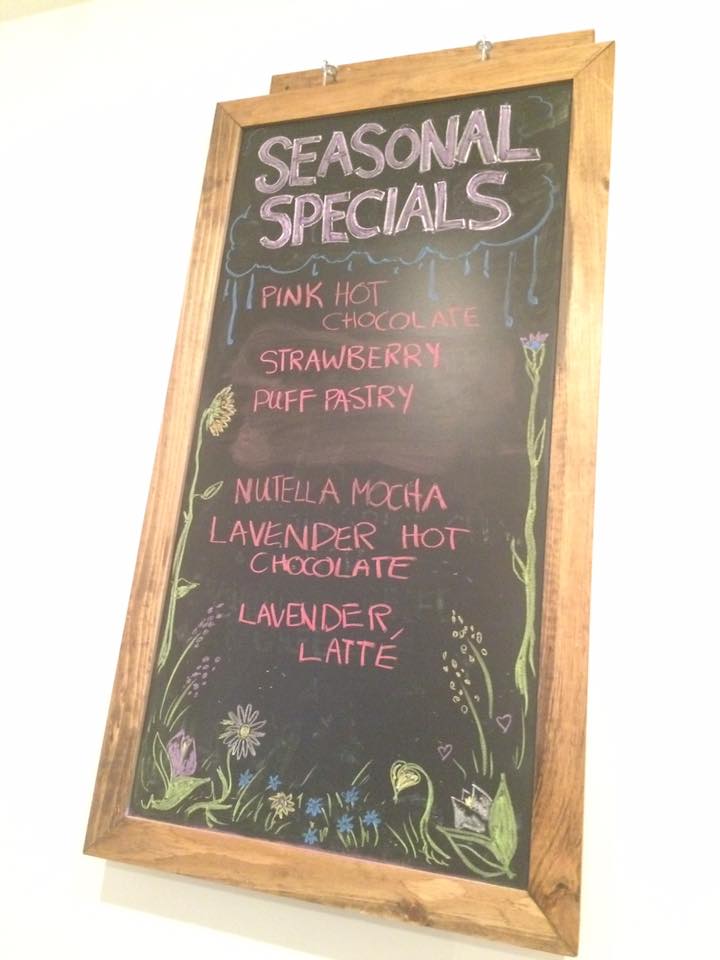 SEASONAL
SPECIALS
PINK HOT
CHOCOLATE
STRAWBERRY
PUFF PASTRY
NUTELLA MOCHA
LAVENDER HOT
CHOCOLATE
LAVENDER
LATTÉ